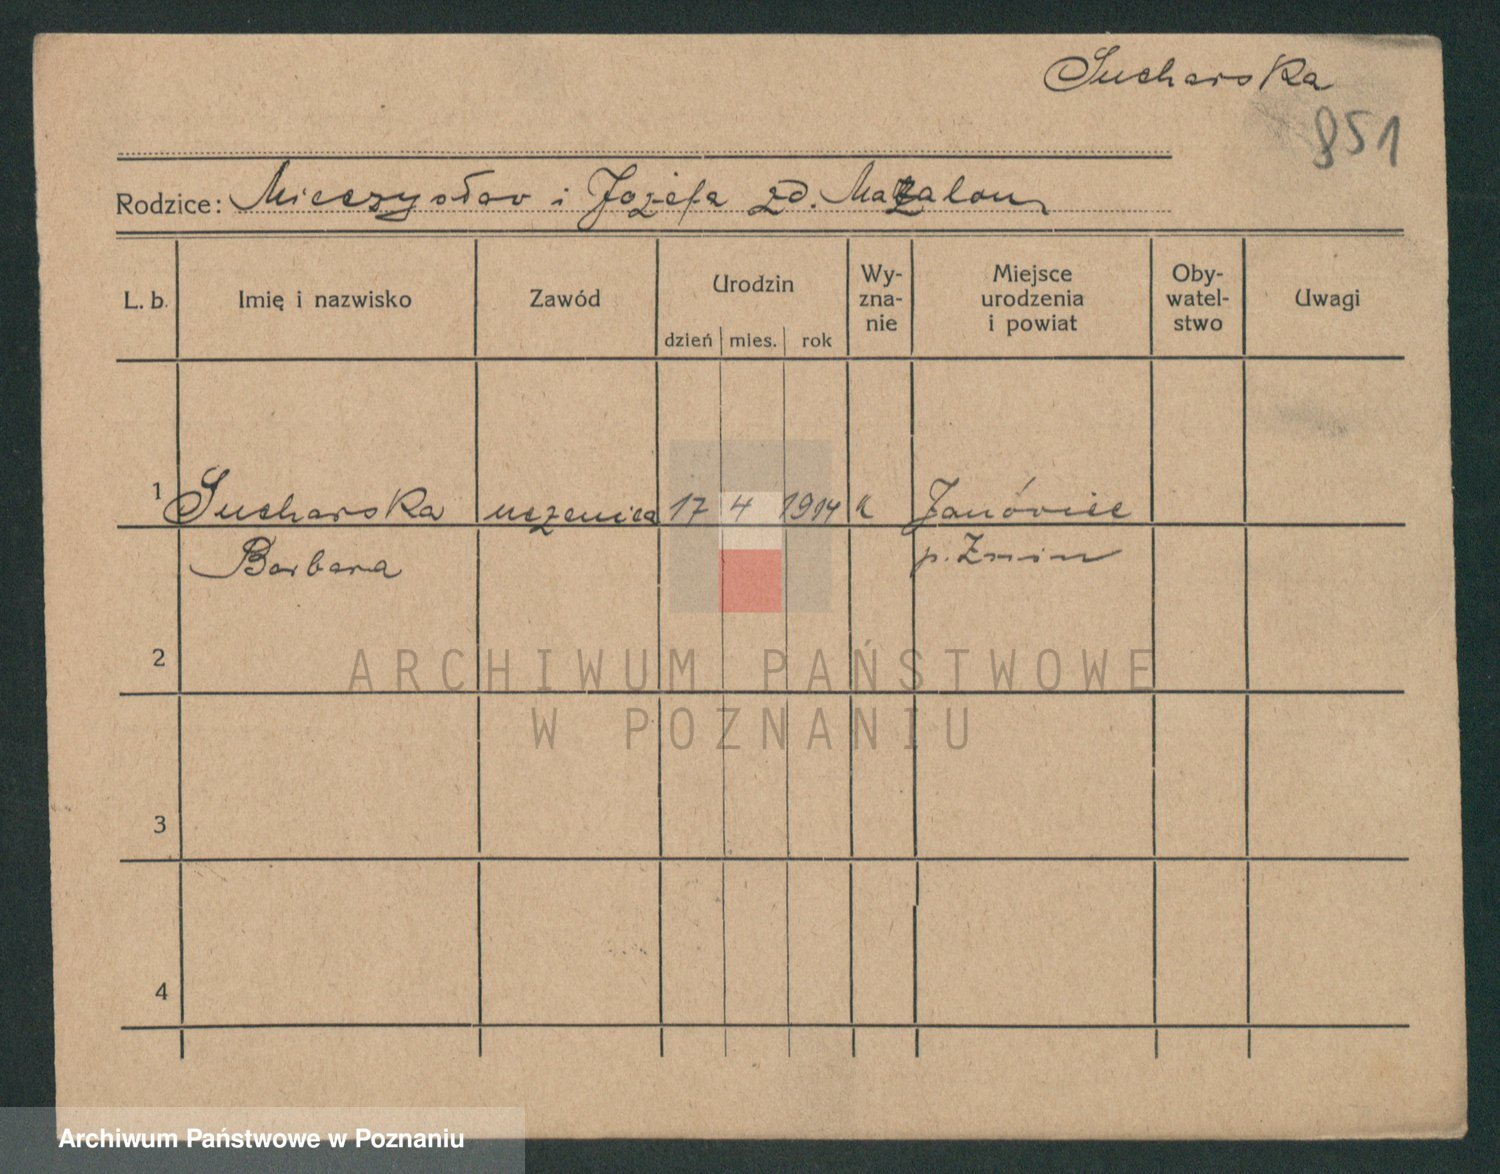 Sucharska
851
Rodzice: Mieczysław i Józefa zd.
L. b. Imię i nazwisko Zawód Urodzin dzień mies. rok Wy-zna-nie Miejsce urodzenia i powiat Oby-watel-stwo Uwagi
1 Sucharska uczenica 17 4 1914 k Janówiec
Barbara p. Żnin
2
ARCHIWUM PAŃSTWOWE
W POZNANIU
3
4
Archiwum Państwowe w Poznaniu